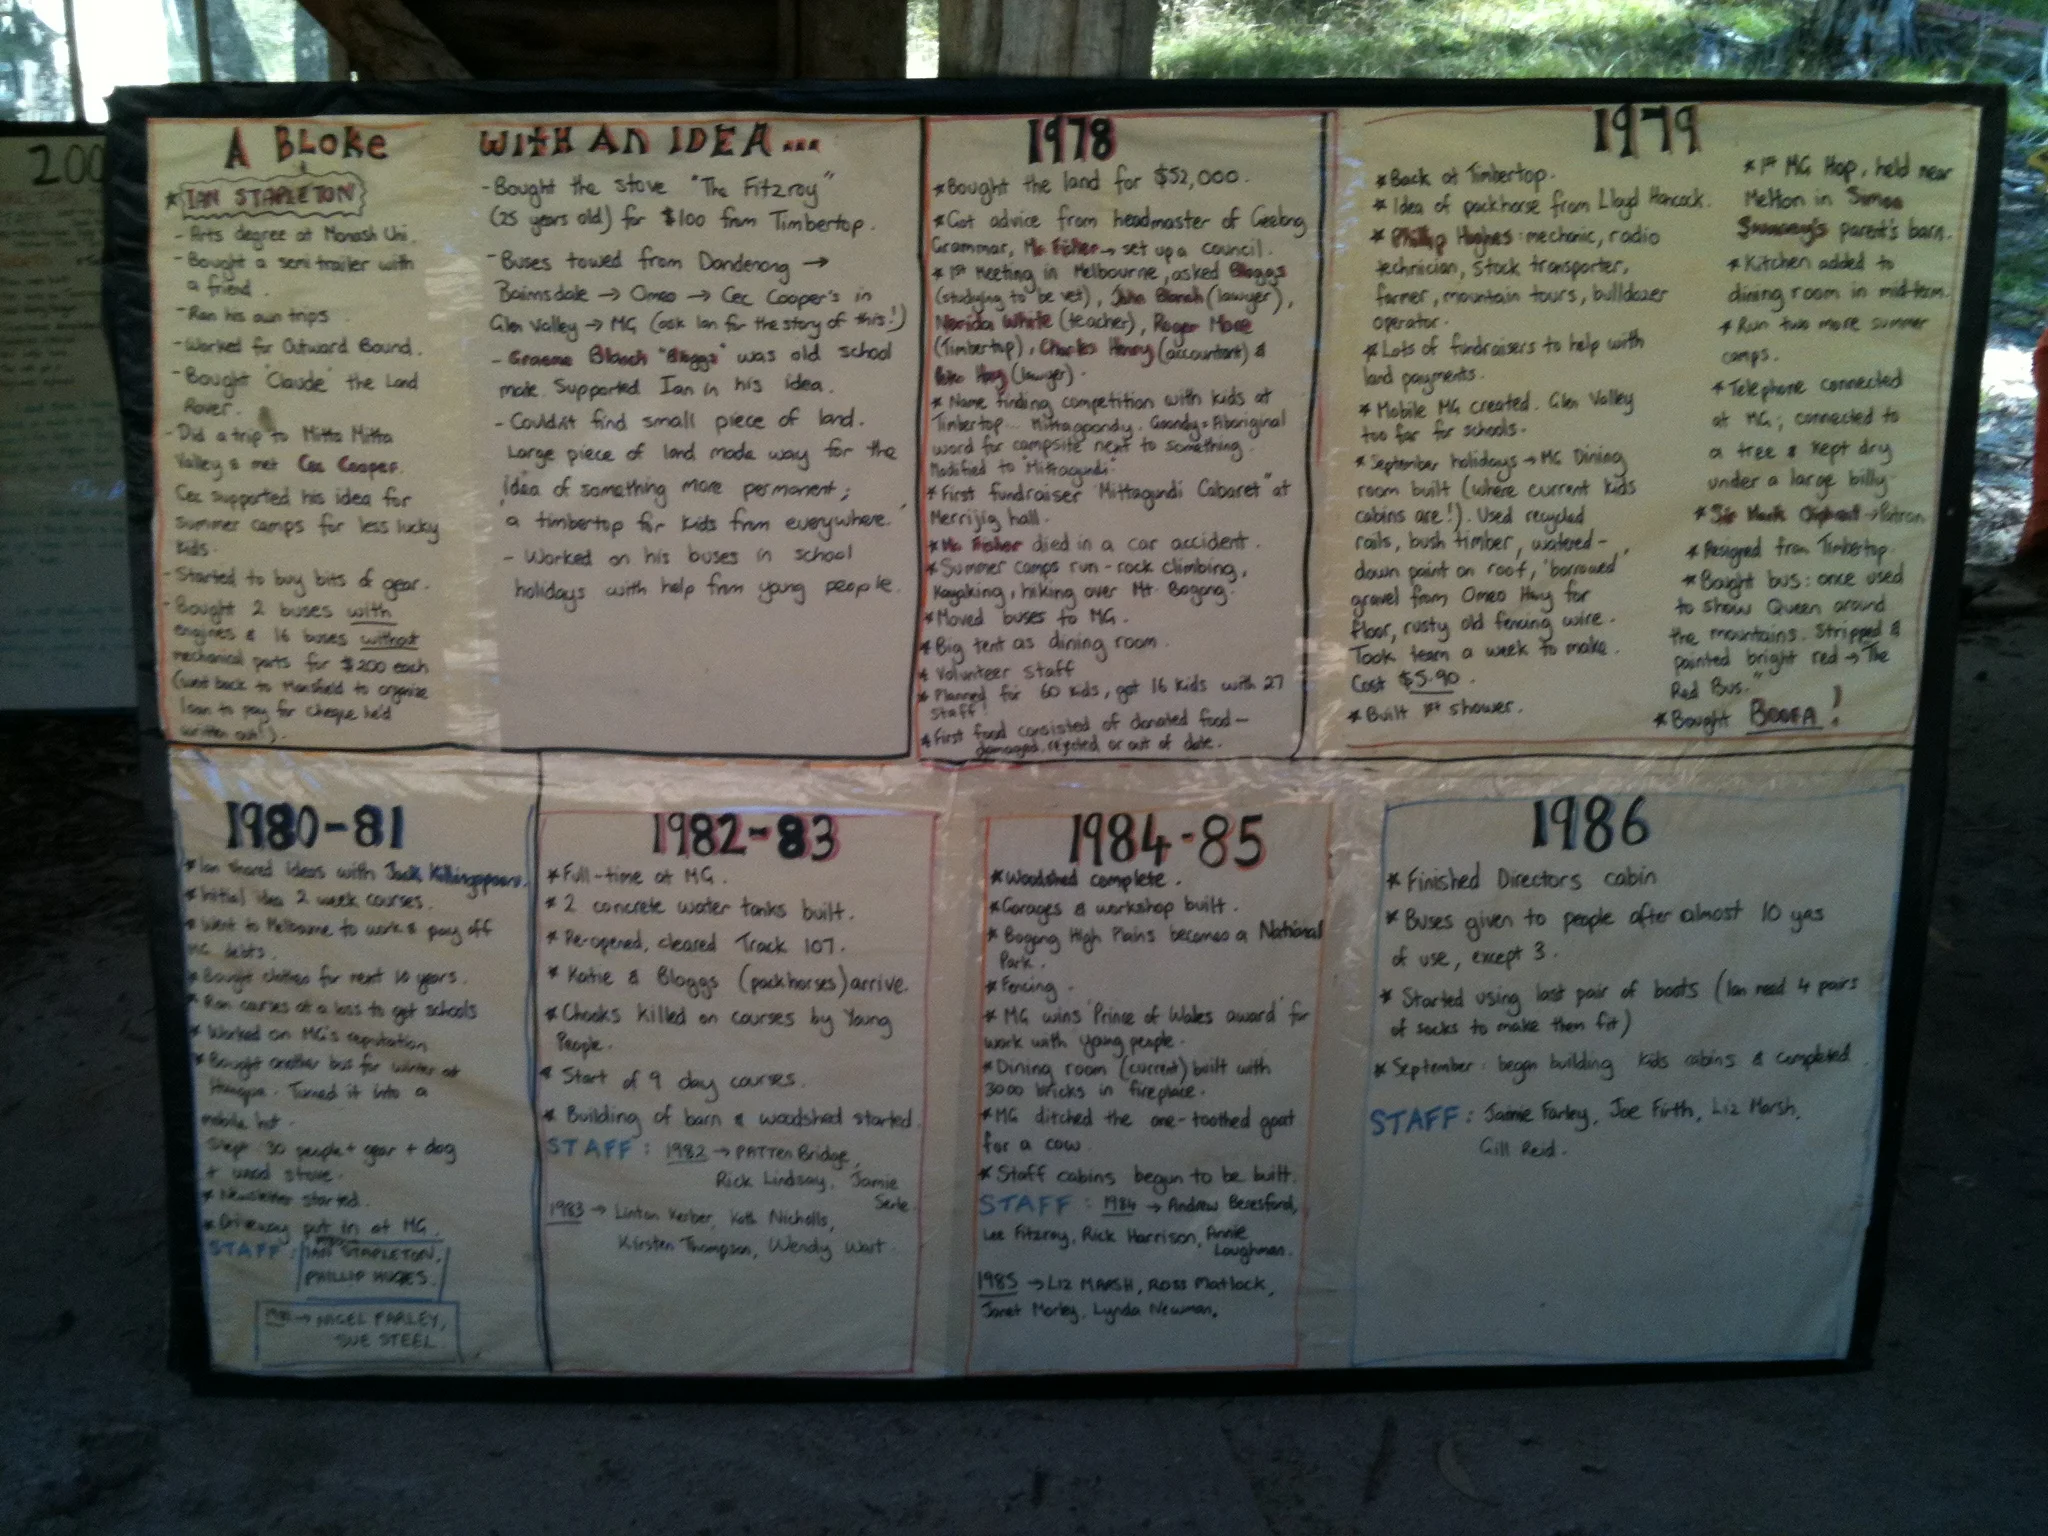 A BLOKE WITH AN IDEA...
* IAN STAPLETON
- Arts degree at Monash Uni.
- Bought a semi trailer with
a friend.
- Ran his own trips
- Worked for Outward Bound.
- Bought "Claude" the Land
Rover.
- Did a trip to Mitta Mitta
Valley & met Cec Cooper.
Cec supported his idea for
summer camps for less lucky
kids.
- Started to buy bits of gear.
- Bought 2 buses with
engines & 16 buses without
mechanical parts for $200 each
(went back to Mansfield to organize
loan to pay for cheque he'd
written out!).
- Bought the stove "The Fitzroy"
(25 years old) for $100 from Timbertop.
- Buses towed from Dandenong →
Bairnsdale → Omeo → Cec Cooper's in
Glen Valley → MG (ask Ian for the story of this!)
- Graeme Blanch "Bloggs" was old school
mate. Supported Ian in his idea.
- Couldn't find small piece of land.
Large piece of land made way for the
idea of something more permanent;
'a timbertop for kids from everywhere.'
- Worked on his buses in school
holidays with help from young people.
1978
* Bought the land for $52,000.
* Got advice from headmaster of Geelong
Grammar, Mr Fisher → set up a council.
* 1st Meeting in Melbourne, asked Bloggs
(studying to be vet), John Blanch (lawyer),
Narida White (teacher), Roger More
(Timbertop), Charles Henry (accountant) &
(lawyer).
* Name finding competition with kids at
Timbertop... Mittagoondy. Goondy = Aboriginal
word for campsite next to something.
Modified to "Mittagundi"
* First fundraiser "Mittagundi Cabaret" at
Merrijig hall.
* Mr Fisher died in a car accident.
* Summer camps run - rock climbing,
Kayaking, hiking over Mt. Bogong.
* Moved buses to MG.
* Big tent as dining room.
* Volunteer staff
* Planned for 60 kids, got 16 kids with 27
staff!
* First food consisted of donated food -
damaged, rejected or out of date.
1979
* Back at Timbertop.
* Idea of packhorse from Lloyd Hancock.
* Phillip Hughes: mechanic, radio
technician, stock transporter,
farmer, mountain tours, bulldozer
operator.
* Lots of fundraisers to help with
land payments.
* Mobile MG created. Glen Valley
too far for schools.
* September holidays → MG Dining
room built (where current kids
cabins are!). Used recycled
rails, bush timber, watered-
down paint on roof, 'borrowed'
gravel from Omeo Hwy for
floor, rusty old fencing wire.
Took team a week to make.
Cost $5.90.
* Built 1st shower.
* 1st MG Hop, held near
Melton in Simon
Sweeney's parent's barn.
* Kitchen added to
dining room in mid-term.
* Run two more summer
camps.
* Telephone connected
at MG; connected to
a tree & kept dry
under a large billy
* Sir Mark Oliphant → Patron
* Resigned from Timbertop.
* Bought bus: once used
to show Queen around
the mountains. Stripped &
painted bright red → "The
Red Bus."
* Bought BOOFA!
1980-81
* Ian shared ideas with Jack Killingspears.
* Initial idea 2 week courses.
* Went to Melbourne to work & pay off
MG debts.
* Bought clothes for next 10 years.
* Ran courses at a loss to get schools
* Worked on MG's reputation
* Bought another bus for winter at
. Turned it into a
mobile hut.
Slept 30 people + gear + dog
+ wood stove.
* Newsletter started.
* Driveway put in at MG.
STAFF: IAN STAPLETON,
PHILLIP HUGES.
1981 → NIGEL FARLEY,
SUE STEEL
1982-83
* Full-time at MG.
* 2 concrete water tanks built.
* Re-opened, cleared Track 107.
* Katie & Bloggs (packhorses) arrive.
* Chooks killed on courses by Young
People.
* Start of 9 day courses.
* Building of barn & woodshed started
STAFF: 1982 → PATTEN Bridge,
Rick Lindsay, Jamie
Serle
1983 → Linton Kerber, Kath Nicholls,
Kirsten Thompson, Wendy Wart.
1984-85
* Woodshed complete.
* Garages & workshop built.
* Bogong High Plains becomes a National
Park.
* Fencing.
* MG wins 'Prince of Wales award' for
work with young people.
* Dining room (current) built with
3000 bricks in fireplace.
* MG ditched the one-toothed goat
for a cow.
* Staff cabins begun to be built.
STAFF: 1984 → Andrew Beresford,
Lee Fitzroy, Rick Harrison, Annie
Loughman.
1985 → LIZ MARSH, Ross Matlock,
Janet Morley, Lynda Newman.
1986
* Finished Directors cabin
* Buses given to people after almost 10 yrs
of use, except 3.
* Started using last pair of boots (Ian need 4 pairs
of socks to make them fit)
* September: began building kids cabins & completed.
STAFF: Jaimie Farley, Joe Firth, Liz Marsh,
Gill Reid.
200